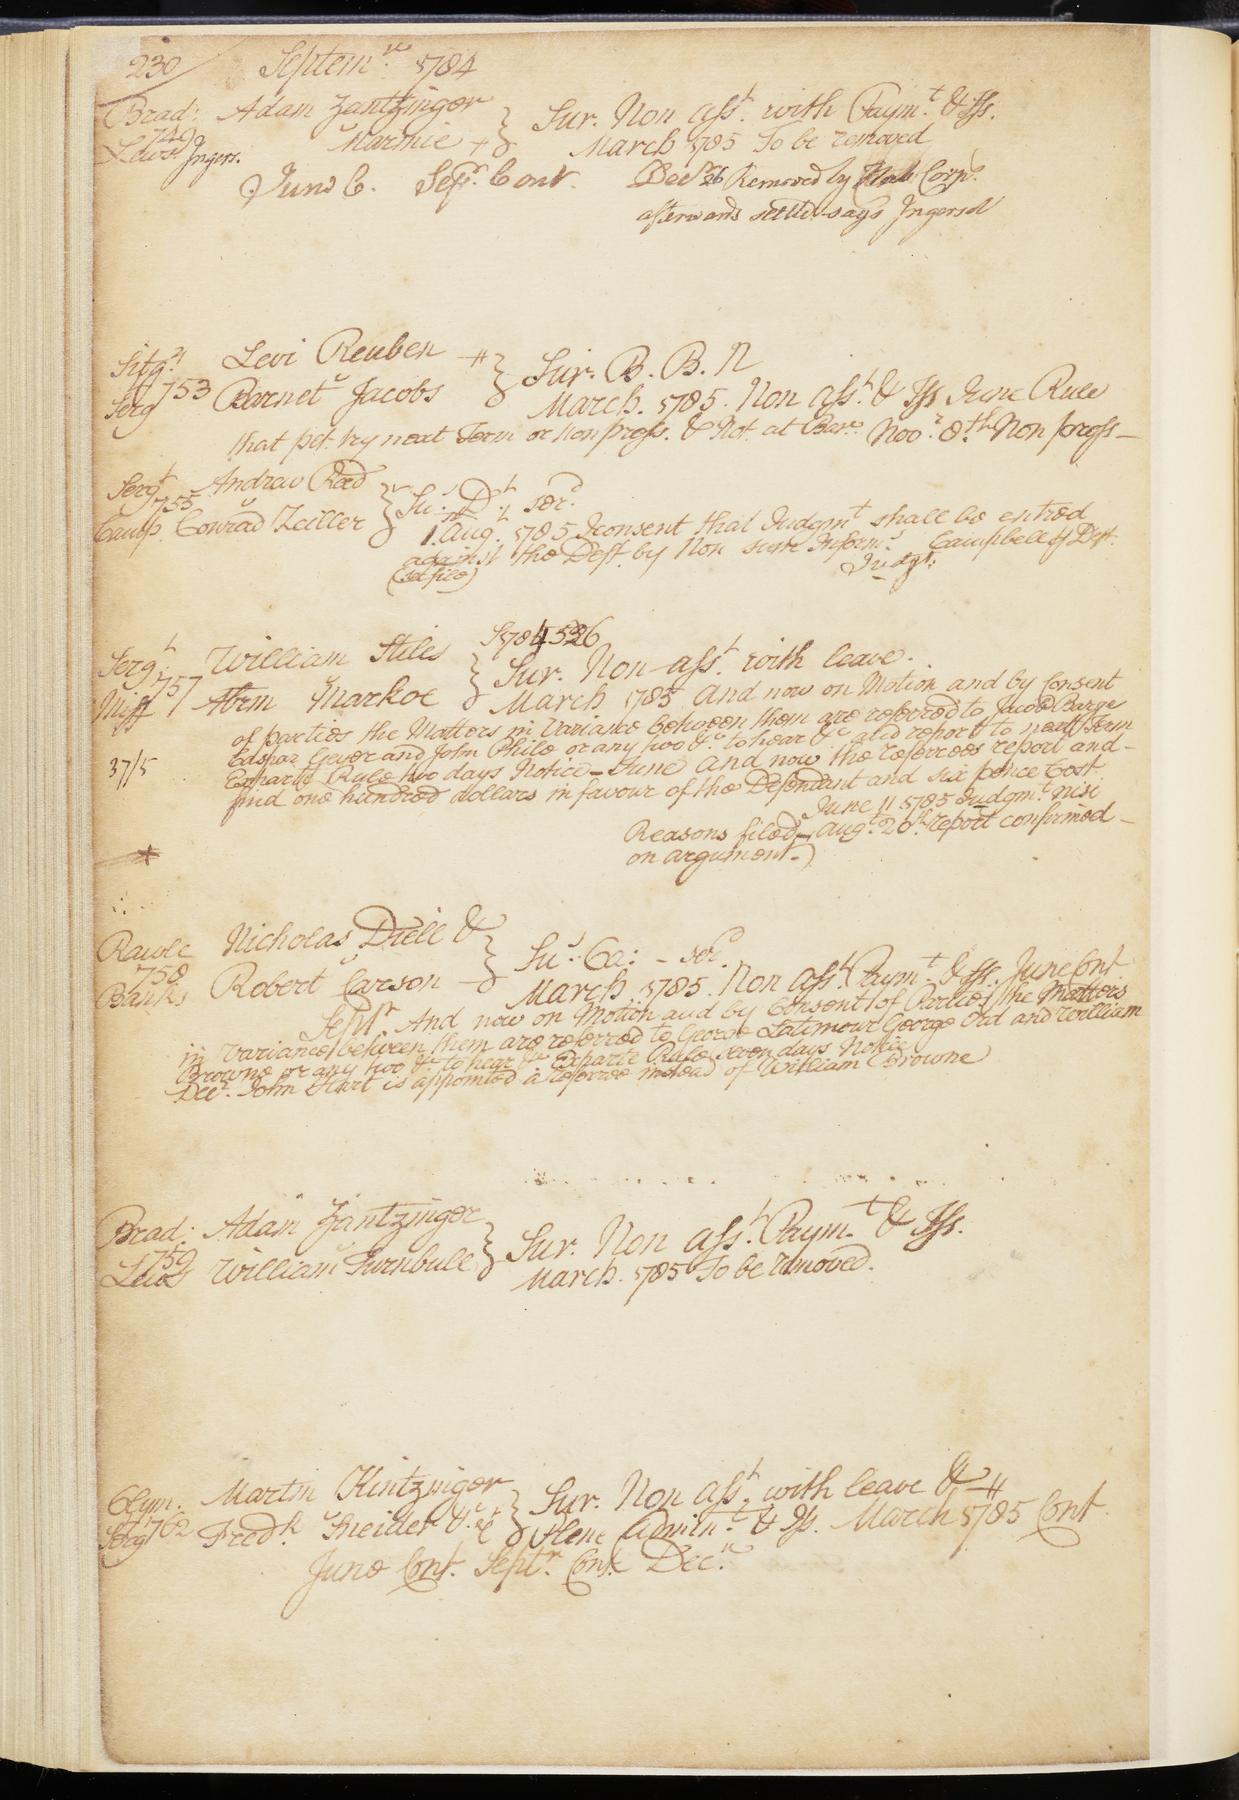 230 Septemr. 1784
Brad: Adam Zantzinger } Sur. Non asst. with Paymt. & Iss.
749 v
Lewis Ingers. Marmie + March 1785 To be removed
June C. Sepr. Cont. Decr. 26 Removed by Hab. Corps.
afterwards settled says Ingersol
Sitgs. Levi Reuben # } Sur. B. B. N
753 v
Serg Barnet Jacobs March. 1785. Non asst. & Iss June Rule
that pet. try next Term or nonpross. & Not. at Bar. Novr. 8th Non pross
Sergt Andrew Reed } Su. Dt. serd.
755 v
Camp. Conrad Zeiller 1 Augt. 1785 I consent that Judgmt. shall be entred
against the Deft. by Non sum Informs. Campbell of Deft.
(see file) Judgt.
S 1784 526
Sergt. William Stiles } Sur. Non asst. with leave.
757 v
Miff Abrm Markoe March 1785 And now on Motion and by Consent
of parties the Matters in Variance between them are referred to Jacob Barge
Caspar Geyer and John Phile or any two &c to hear &c and report to next Term
37/5 Exparte Rule two days Notice June And now the referrees report and
find one hundred dollars in favour of the Defendant and six pence Cost.
June 11 1785 Judgmt. nisi
Reasons filed Augt. 20th. report confirmed
on argument.
Rawle Nicholas Diell & } Su. Ca: serd.
758 v
Banks Robert Carson March. 1785. Non asst. Paymt & Iss. June Cont.
Septr. And now on Motion and by Consent of Parties the Matters
in Variance between them are referred to George Latimour George Ord and William
Browne or any two &c to hear &c Exparte Rule seven days Notice
Decr. John Hart is appointed a referree instead of William Browne
Brad: Adam Zantzinger } Sur. Non asst. Paymt. & Iss.
759 v
Lewis William Turnbull March. 1785 To be removed.
Clym. Martin Kintzinger } Sur. Non asst. with leave &
762 v
Serg Fredk. Sneider &c Plene Admint. & Iss. March 1785 Cont
June Cont. Septr. Cont. Decr.